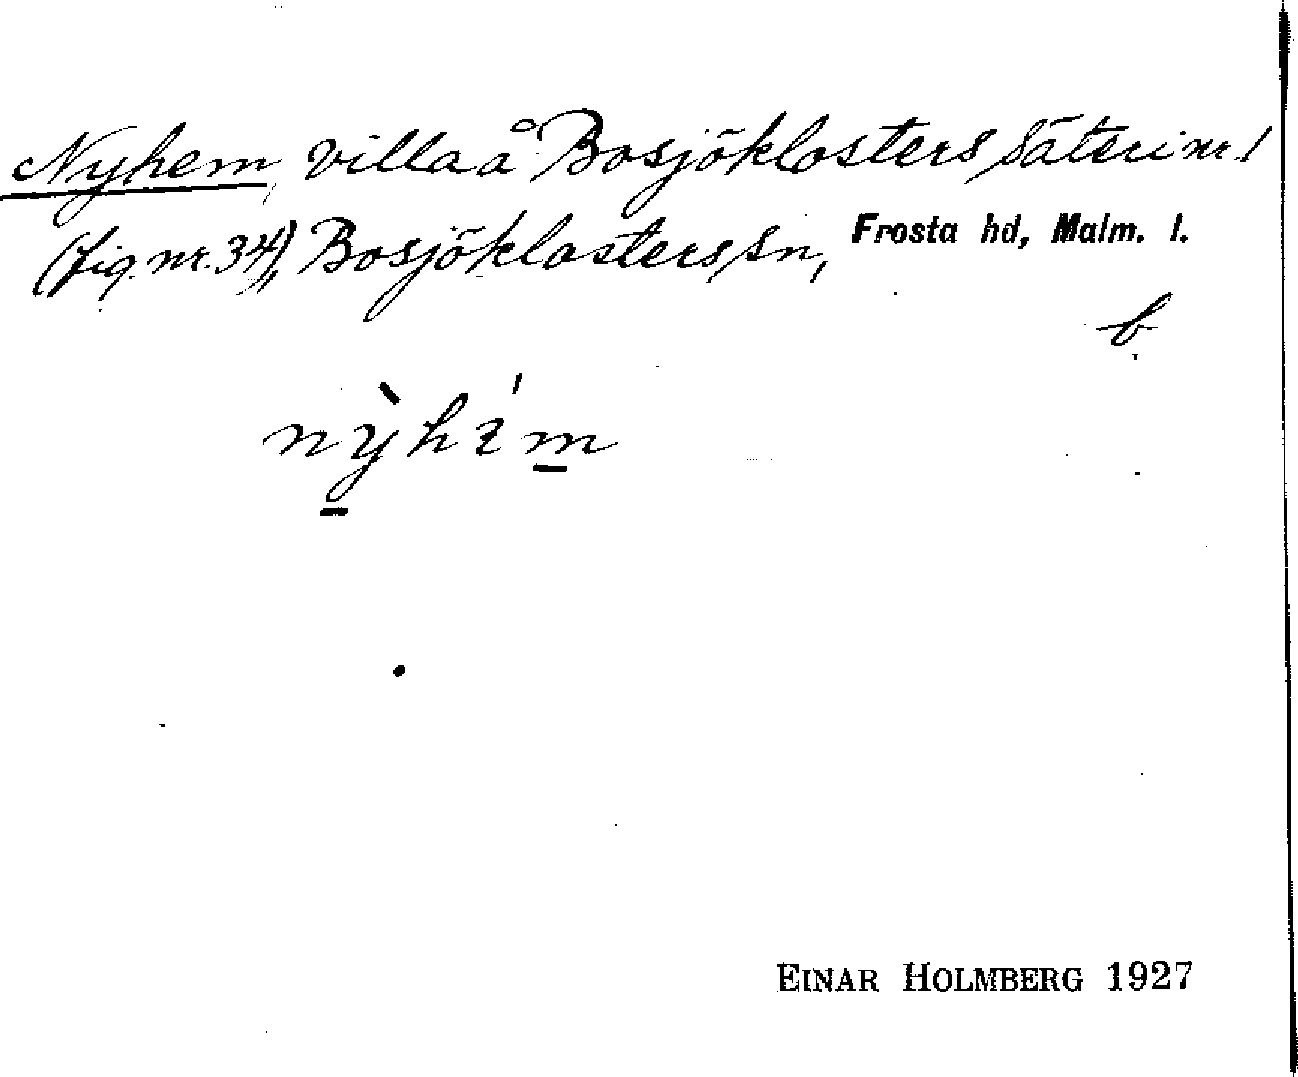 Nyhem, villa å Bosjöklosters säteri nr. 1
(fig. nr. 34), Bosjöklosters sn, Frosta hd, Malm. l.
b
EINAR HOLMBERG 1927